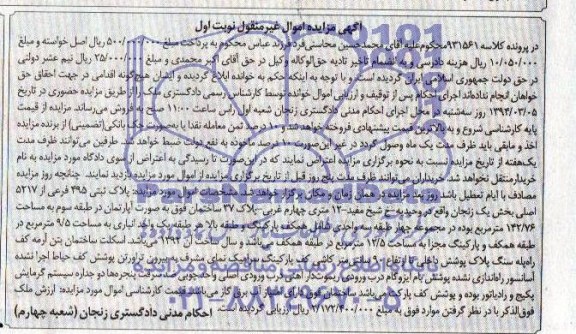 آگهی مزایده اموال غیرمنقول نوبت اول
در پرونده کلاسه ۹۳۱۵۶۱ محکوم‌علیه آقای محمدحسین محاسنی‌فرد فرزند عباس محکوم به پرداخت مبلغ ۵۰۰/۰۰۰/۰۰۰ ریال اصل خواسته و مبلغ
۱۰/۰۵۰/۰۰۰ ریال هزینه دادرسی و به انضمام تاخیر تادیه حق‌الوکاله وکیل در حق آقای اکبر محمدی و مبلغ ۲۵/۰۰۰/۰۰۰ ریال نیم عشر دولتی
در حق دولت جمهوری اسلامی ایران گردیده است و با توجه به اینکه حکم به خوانده ابلاغ گردیده و ایشان هیچ‌گونه اقدامی در جهت احقاق حق
خواهان انجام نداده‌اند اجرای احکام پس از توقیف و ارزیابی اموال خوانده توسط کارشناس رسمی دادگستری ملک را از طریق مزایده حضوری در تاریخ
۱۳۹۴/۰۳/۰۵ روز سه‌شنبه در محل اجرای احکام مدنی دادگستری زنجان شعبه اول راس ساعت ۱۱:۰۰ صبح به فروش می‌رساند. مزایده از قیمت
پایه کارشناسی شروع و به بالاترین قیمت پیشنهادی فروخته خواهد شد و ده درصد ثمن معامله نقدا یا به‌صورت چک بانکی(تضمینی) از برنده مزایده
اخذ و مابقی باید ظرف مدت یک ماه وصول گردد در غیر این‌صورت ده درصد ماخوذه به نفع دولت ضبط خواهد شد. طرفین می‌توانند ظرف مدت
یک‌هفته از تاریخ مزایده نسبت به نحوه برگزاری مزایده اعتراض نمایند که در این‌صورت تا رسیدگی به اعتراض از سوی دادگاه مورد مزایده به نام
خریدار منتقل نخواهد شد. خریداران می‌توانند ظرف مدت پنج روز قبل از تاریخ برگزاری مزایده از اموال موردمزایده بازدید نمایند. چنانچه روز مزایده
مصادف با ایام تعطیل باشد روز بعد مزایده در همان زمان و مکان برگزار خواهد شد. مشخصات اموال مورد مزایده: پلاک ثبتی ۴۹۵ فرعی از ۵۲۱۷
اصلی بخش یک زنجان واقع در وحیدیه-خ شیخ مفید-۱۲ متری چهارم غربی-پلاک ۳۷ ساختمان فوق به صورت آپارتمان در طبقه سوم به مساحت
۱۴۲/۷۶ مترمربع بوده در مجموعه چهار طبقه سه واحدی شامل همکف پارکینگ و طبقه بالا هر طبقه یک واحد انباری به مساحت ۹/۵ مترمربع در
طبقه همکف و پارکینگ مجزا به مساحت ۱۲/۵ مترمربع در طبقه همکف می‌باشد و سال ساخت آن ۱۳۹۲ می‌باشد. اسکلت ساختمان بتن آرمه کف
راه‌پله سنگ پلاک پوشش داخلی تا ارتفاع ۹۰ سانتی‌متر کاشی کف پارکینگ موزائیک نمای مشرف به بیرون تراورتن پوشش کف حیاط اجرا نشده
آسانسور راه‌اندازی نشده پوشش بام ایزوگام درب ورودی
پکیج و رادیاتور بوده و پوشش کف پارکت می‌باشد
فوق‌الذکر با در نظر گرفتن موارد فوق به مبلغ ۲/۱۷۲/۴۰۰/۰۰۰ ریال ارزیابی گردیده است.
احکام مدنی دادگستری زنجان (شعبه چهارم)
ParsNamadData
۰۲۱-۸۸۳۴۹۶۷۰-۵